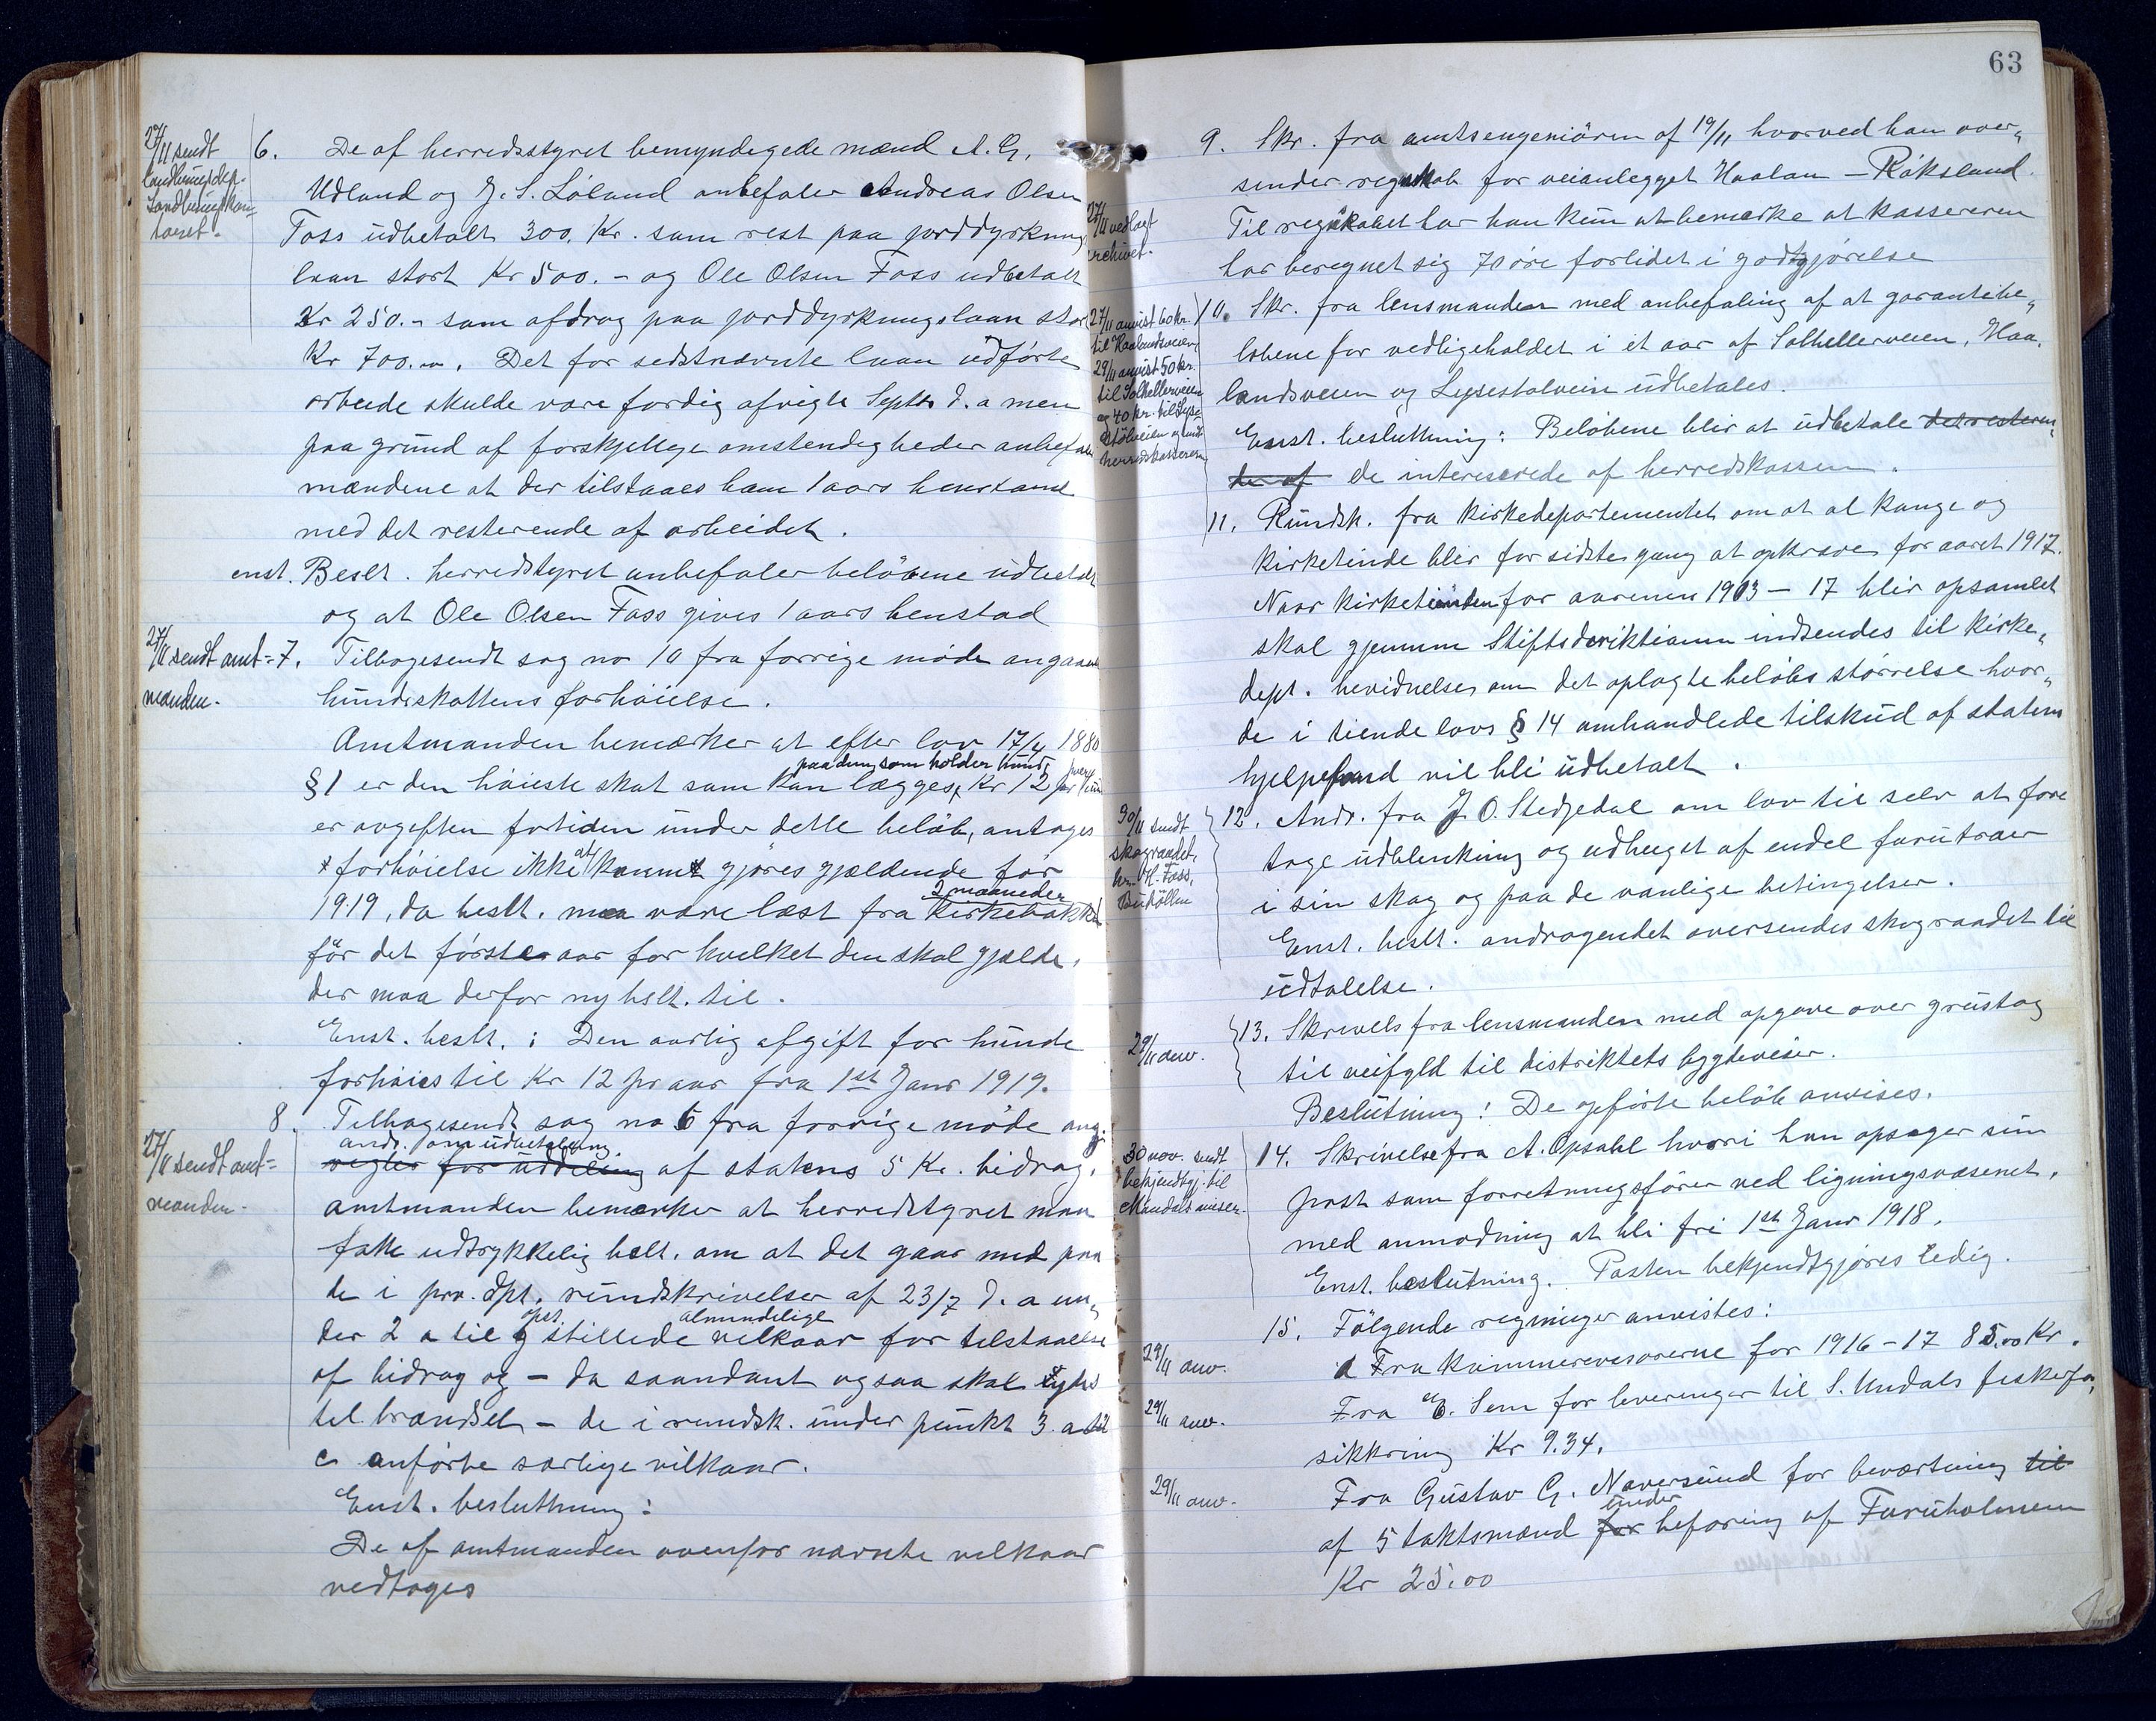 27/11 sendt
landbrugsdep.
Landbrugskon-
toret.
6. De af herredsstyret bemyndigede mænd A. G.
Udland og J. S. Löland anbefaler Andreas Olsen
Foss udbetalt 300. Kr. som rest paa jorddyrkning
laan stort Kr 500.- og Ole Olsen Foss udbetalt
Kr 250.- som afdrag paa jorddyrkningslaan stor
Kr 700.00. Det for sidstnævnte laan udförte
arbeide skulde være færdig afvigte Septbr d. a men
paa grund af forskjellige omstendigheder anbefaler
mændene at der tilstaaes ham 1 aars henstand
med det resterende af arbeidet.
enst. Beslt. herredstyret anbefaler belöbene udbetalt
og at Ole Olsen Foss gives 1 aars henstad
27/11 sendt amt=
manden.
7. Tilbagesendt sag no 10 fra forrige möde angaaende
hundeskattens forhöielse.
Amtmanden bemærker at efter lov 17/4 1880
paa dem som holder hund,
§1 er den höieste skat som kan lægges, Kr 12 for hver
er avgiften fortiden under dette belöb, antages
forhöielse ikke at kunne gjöres gjældende för
2 maaneder
1919, da beslt. maa være læst fra kirkebakken
för det förste aar for hvilket den skal gjælde,
der maa derfor ny beslt. til.
Enst. beslt. : Den aarlig afgift for hunde
forhöies til Kr 12 pr aar fra 1st Janr 1919.
27/11 sendt amt=
manden.
8. Tilbagesendt sag no 6 fra forrige möde ang.
andr. om udbetaling
regler for uddeling af statens 5 Kr. bidrag.
amtmanden bemærker at herredstyret maa
fatte udtrykkelig beslt. om at det gaar med paa
de i prov. dpt. rundskrivelser af 23/7 d. a un„
opst. almindelige
der 2 a til g stillede vilkaar for tilstaaelse
af bidrag og – da saandant ogsaa skal ydes
til brændsel – de i rundsk. under punkt 3. a til
c anförte særlige vilkaar.
Enst. besluttning:
De af amtmanden ovenfor nævnte vilkaar
vedtages
63
27/11 vedlagt
archivet.
9. Skr. fra amtsengeniören af 19/11 hvorved han over„
sender regnskab for veianlegget Haalan – Röksland.
Til regnskabet har han kun at bemærke at kassereren
har beregnet sig 70 öre forlidet i godtgjörelse
27/11 anvist 60 kr.
til Haalandsveien,
29/11 anvist 50 kr.
til Solhellerveien
og 40 kr. til Lyse-
stölveien og sendt
herredskassereren
10. Skr. fra lensmanden med anbefaling af at garantibe„
löbene for vedligeholdet i et aar af Solhellerveien, Haa„
landsveien og Lysestolvein udbetales.
Enst. besluttning: Belöbene blir at udbetale det resteren„
de af de interesserede af herredskassen.
11. Rundsk. fra kirkedepartementet om at al konge og
kirketiende blir for sidste gang at opkræve for aaret 1917.
Naar kirketienden for aarenen 1913 – 17 blir opsamlet
skal gjennem Stiftsderiktionen indsendes til Kirke„
dept. bevidnelse om det oplagte belöbs störrelse hvor„
de i tiende lovs § 14 omhandlede tilskud af statens
hjelpefond vil bli udbetalt.
30/11 sendt
skograadet,
hr. H. Foss,
Buhöllen
12. Andr. fra J. O. Stedjedal om lov til selv at fore
tage udblinkning og udhugst af endel furutræer
i sin skog og paa de vanlige betingelser.
Enst. beslt. andragendet oversendes skograadet til
udtalelse.
29/11 anv.
13. Skrivels fra lensmanden med opgave over grustag
til veifyld til distriktets bygdeveier.
Beslutning: De opförte belöb anvises.
30 nov. sendt
bekjendtgj. til
Mandals avisen.
14. Skrivelse fra A. Opsahl hvori han opsiger sin
post som forretningsförer ved ligningsvæsenet,
med anmodning at bli fri 1st Janr 1918.
Enst. beslutning. Posten bekjendtgjöres ledig.
15. Fölgende regninger anvistes:
29/11 anv.
Fra kommunerevisorerne for 1916 – 17 85.00 Kr.
29/11 anv.
Fra E. Sem for leveringer til S. Undals fiskerfor„
sikkring Kr 9.34.
29/11 anv.
Fra Gustav G. Naversund for beværtning til
under
af 5 takstmænd for befaring af Furuholmen
Kr 25.00